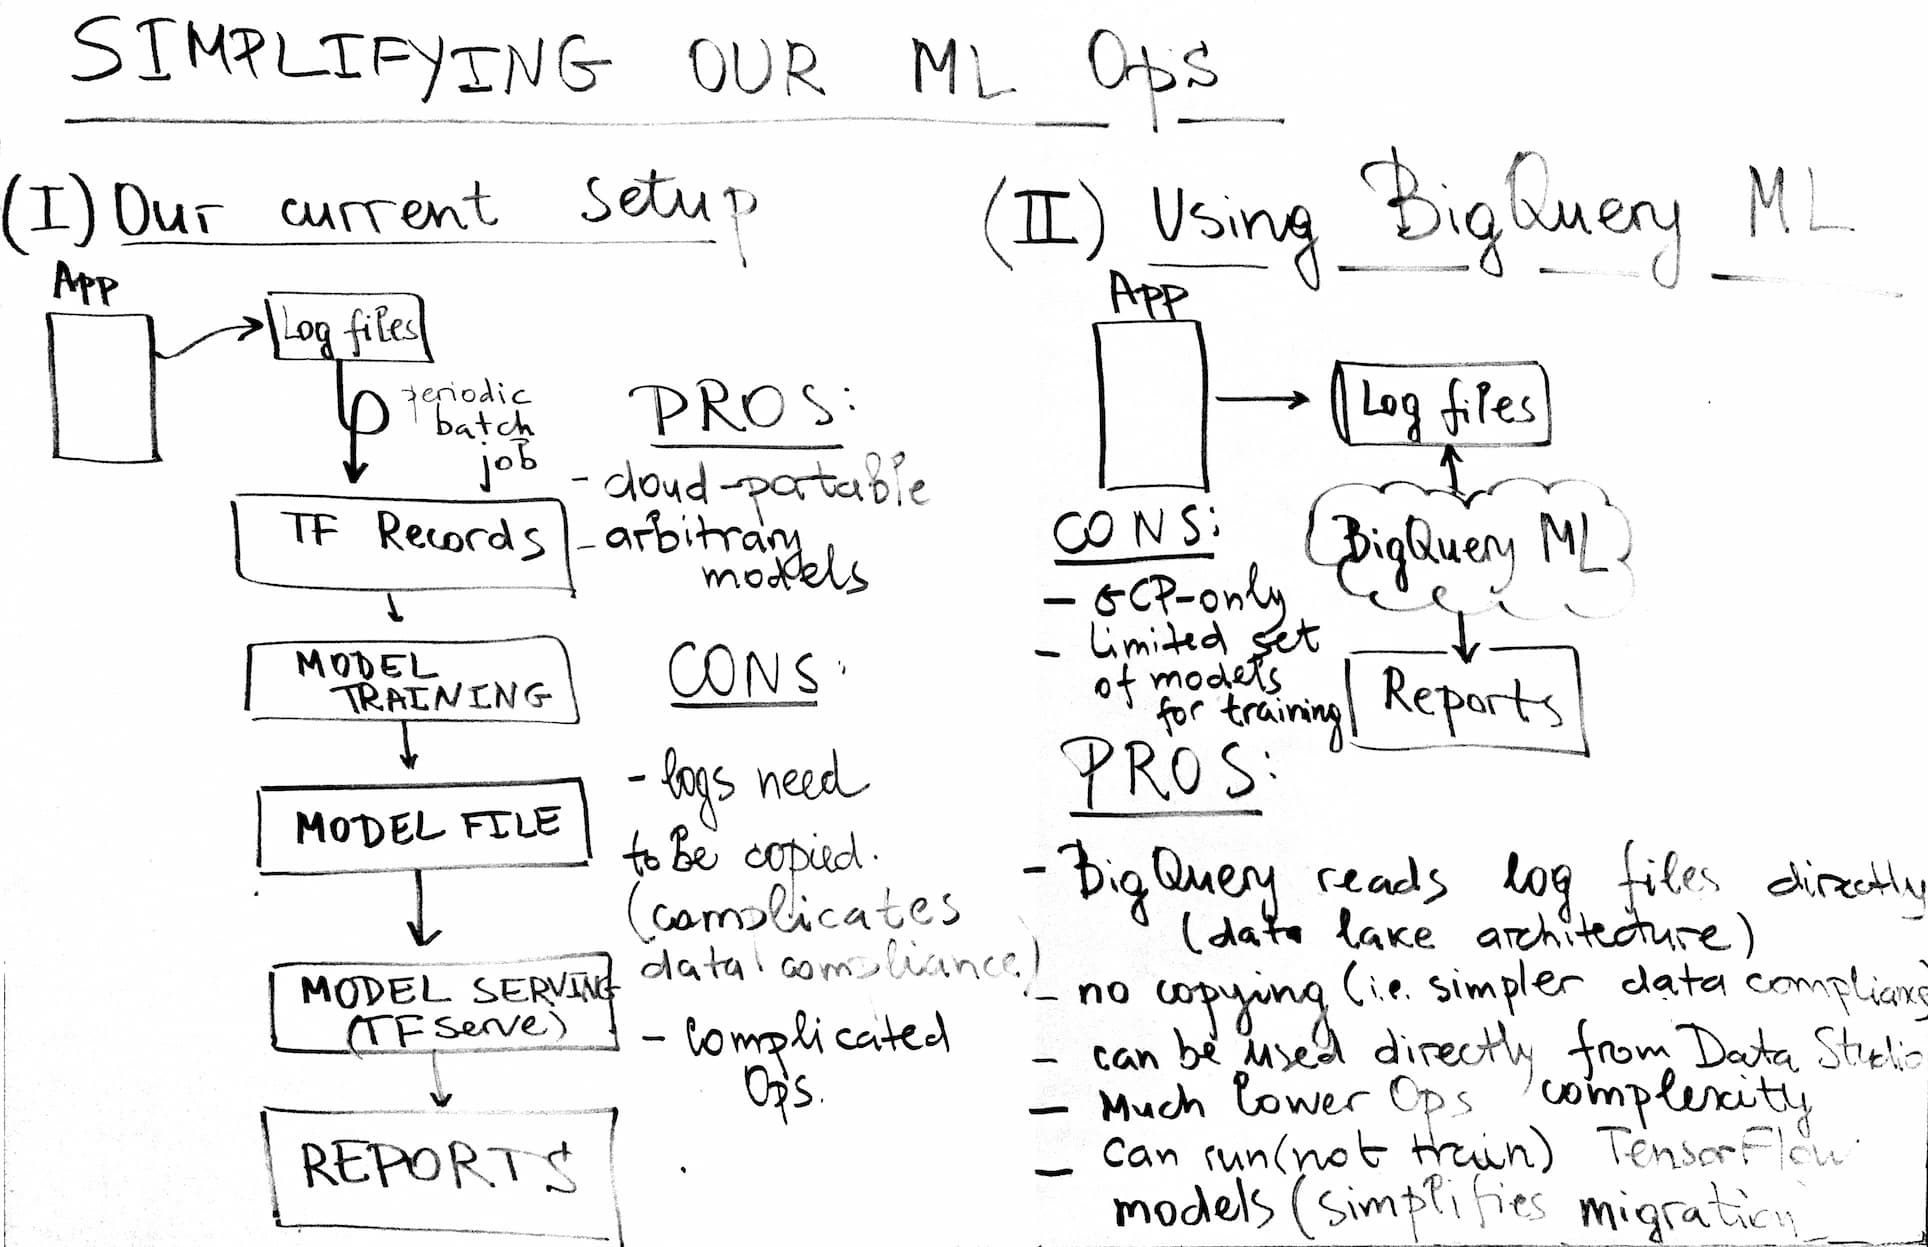 SIMPLIFYING OUR ML Ops
(I) Our current setup
App
Log files
periodic
batch
job
TF Records
MODEL
TRAINING
MODEL FILE
MODEL SERVING
(TF Serve)
REPORTS
PROS:
- cloud-portable
- arbitrary
models
CONS:
- logs need
to be copied.
(complicates
data compliance)
- Complicated
Ops.
(II) Using BigQuery ML
App
Log files
BigQuery ML
Reports
CONS:
- GCP-only
- limited set
of models
for training
PROS:
- BigQuery reads log files directly
(data lake architecture)
- no copying (i.e. simpler data compliance)
- can be used directly from Data Studio
- Much lower Ops complexity
- can run (not train) TensorFlow
models (simplifies migration